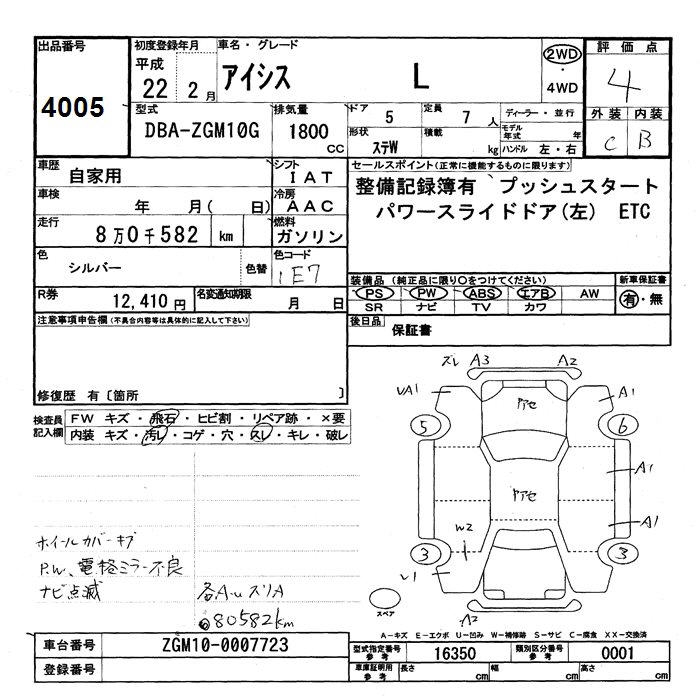 出品番号
4005
初度登録年月
平成
22 2月
車名・グレード
アイシス L
2WD
・
4WD
評価点
4
外装 内装
C B
型式
DBA-ZGM10G
排気量
1800 CC
ドア 5
定員 7 人
形状 ステW
積載 kg
ディーラー・並行
モデル年式 年
ハンドル 左・右
車歴
自家用
シフト
I A T
車検
年 月( 日)
冷房
A A C
走行
8万0千582 km
燃料
ガソリン
セールスポイント(正常に機能するものに限ります)
整備記録簿有 プッシュスタート
パワースライドドア(左) ETC
色
シルバー
色替
色コード
1E7
装備品(純正品に限り○をつけてください)
PS PW ABS エアB AW
SR ナビ TV カワ
新車保証書
有・無
R券
12,410円
名変通知期限
月 日
後日品
保証書
注意事項申告欄(不具合内容等は具体的に記入して下さい)
修復歴 有〔箇所 〕
検査員記入欄
FW キズ・飛石・ヒビ割・リペア跡・×要
内装 キズ・汚レ・コゲ・穴・スレ・キレ・破レ
ズレ A3 A2
UA1 A1
アセ
5 6
A1
アセ
A1
W2
3 3
A2
スペア
ホイールカバーキズ
P.W、電格ミラー不良
ナビ点滅
各A〜UズリA
80582km
A-キズ E-エクボ U-凹み W-補修跡 S-サビ C-腐食 XX-交換済
車台番号
ZGM10-0007723
登録番号
型式指定番号
参考
16350
類別区分番号
参考
0001
車庫証明用
参考
長さ cm 幅 cm 高さ cm